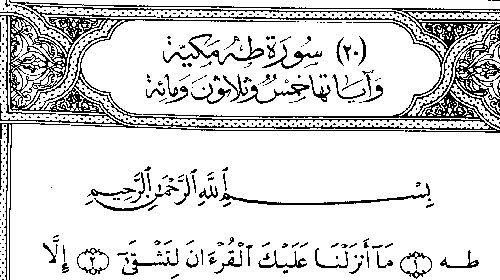 (٢٠) سُورَة طه مَكيّة
وَآيَاتهَا خمسٌ وَثلاثونَ وَمائة
بِسْمِ ٱللَّهِ ٱلرَّحْمَٰنِ ٱلرَّحِيمِ
طه ﴿١﴾ مَآ أَنزَلْنَا عَلَيْكَ ٱلْقُرْءَانَ لِتَشْقَىٰٓ ﴿٢﴾ إِلَّا